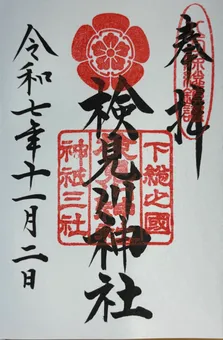 奉拝
検見川神社
下總之國
神祇三社
令和七年十一月二日